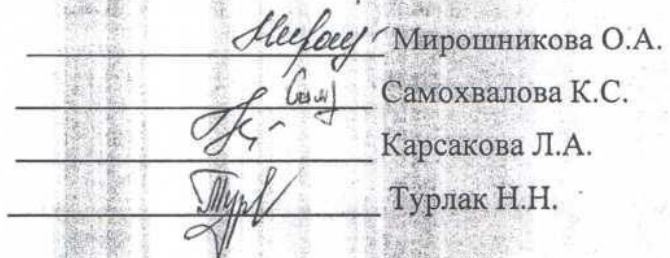 Мирошникова О.А.
Самохвалова К.С.
Карсакова Л.А.
Турлак Н.Н.